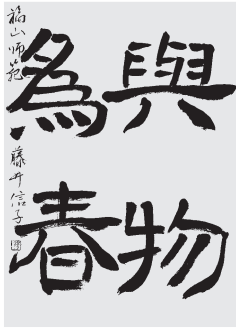 與物
為春
福山师範 藤井信子